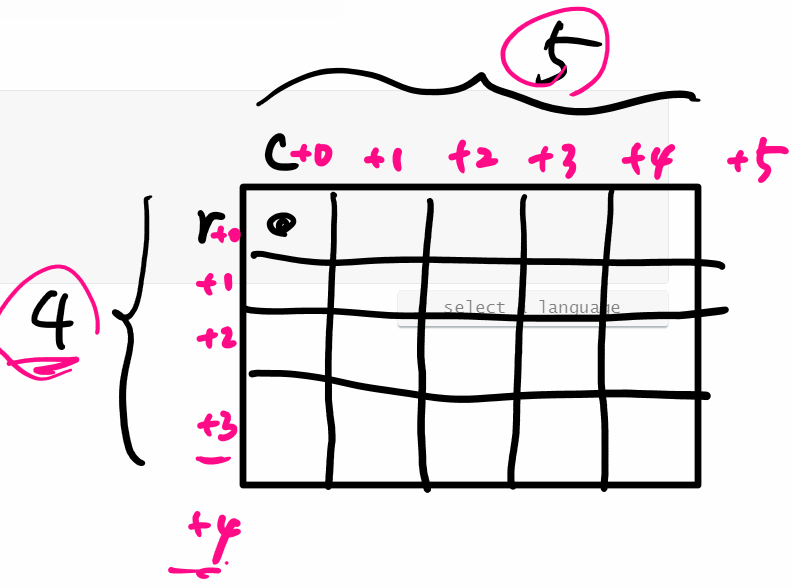 5
C+0 +1 +2 +3 +4 +5
r+0
+1
4
select a language
+2
+3
+4